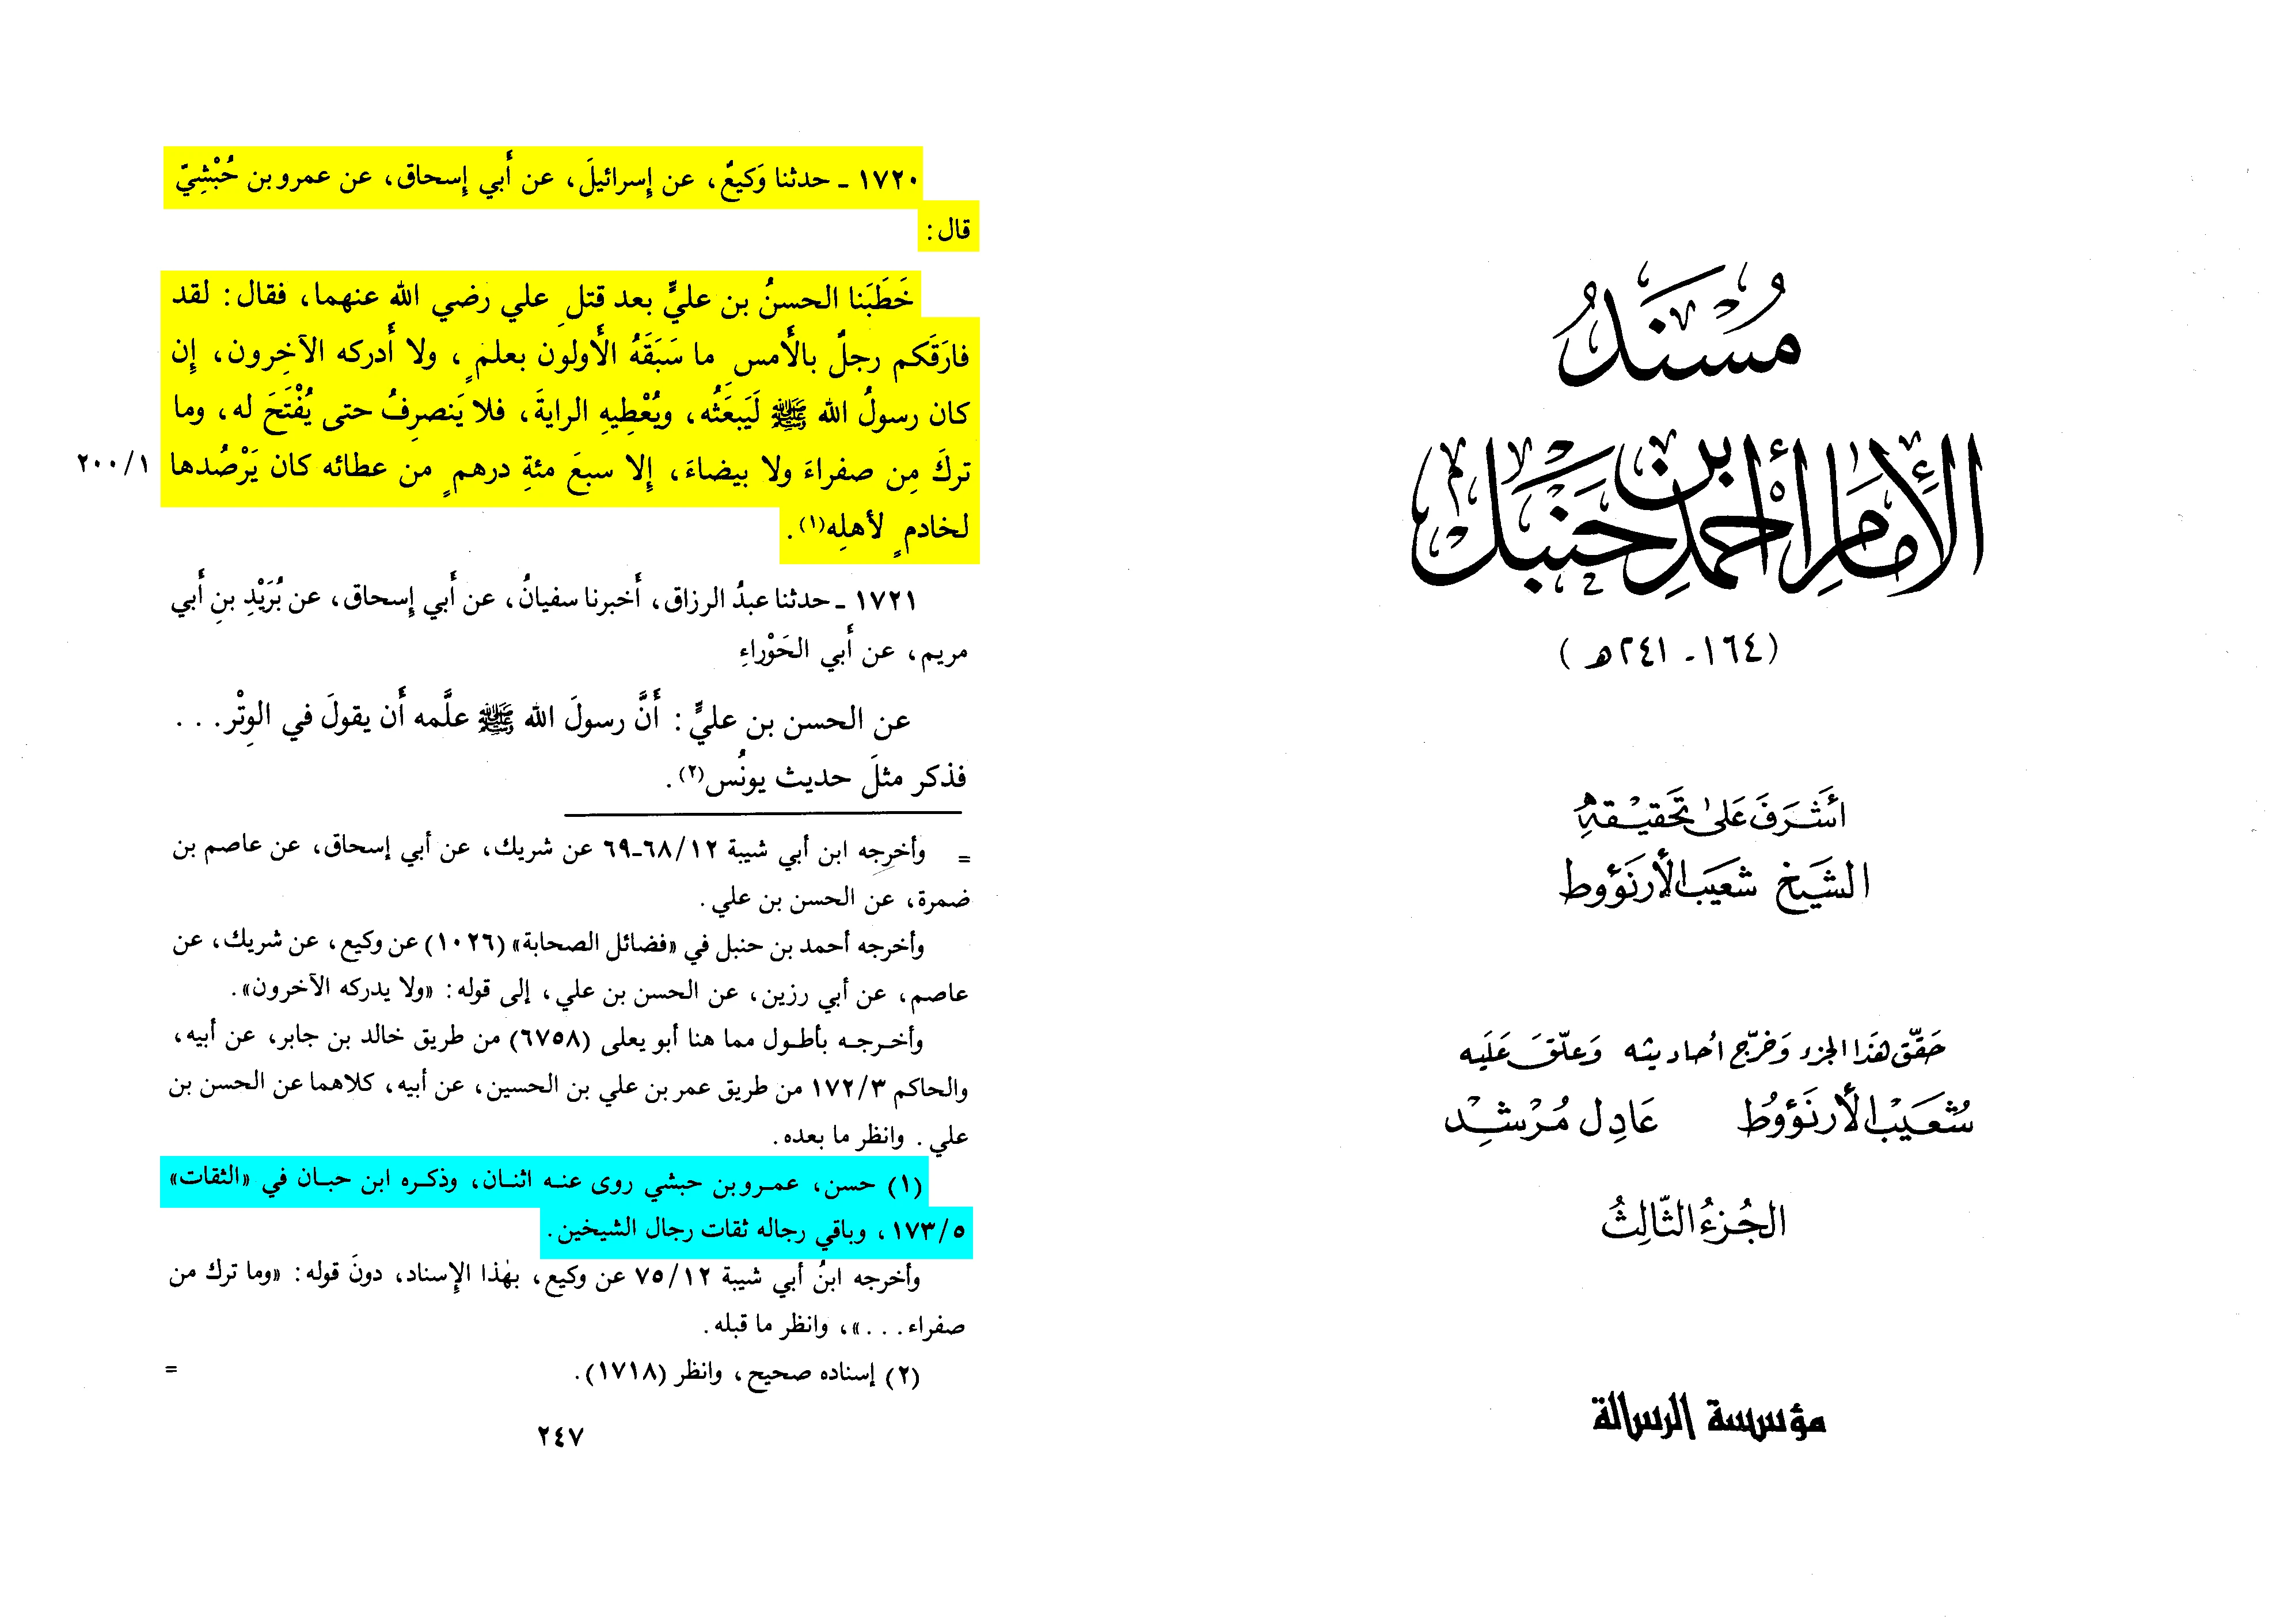 مُسْنَدُ
الإِمَامِ أَحْمَدَ بْنِ حَنْبَلٍ
(١٦٤ - ٢٤١ هـ)
أَشْرَفَ عَلَى تَحْقِيْقِهِ
الشَّيْخ شُعَيب الأرنَؤُوط
حَقّق هَذَا الجزء وَخرّج أحاديثه وَعلّق عَلَيه
شُعَيْب الأرنَؤوُط عَادِل مُرْشِد
الجُزءُ الثَّالِثُ
مؤسسة الرسالة
١٧٢٠ ـ حدثنا وَكيعٌ، عن إِسرائيلَ، عن أَبي إِسحاق، عن عمرو بن حُبْشِيّ
قال:
خَطَبَنا الحسنُ بن عليٍّ بعد قتلِ علي رضي الله عنهما، فقال: لقد
فارَقَكم رجلٌ بالأَمسِ ما سَبَقَهُ الأَولون بعلمٍ، ولا أَدركه الآخِرون، إِن
كان رسولُ الله ﷺ لَيَبعَثُه، ويُعْطِيهِ الرايةَ، فلا يَنصرِفُ حتى يُفْتَحَ له، وما
تركَ مِن صفراءَ ولا بيضاءَ، إِلا سبعَ مئةِ درهمٍ من عطائه كان يَرْصُدها
٢٠٠/١
لخادمٍ لأهلِه(١).
١٧٢١ ـ حدثنا عبدُ الرزاق، أَخبرنا سفيانُ، عن أَبي إِسحاق، عن بُرَيْدِ بنِ أَبي
مريم، عن أَبي الحَوْراءِ
عن الحسن بن عليٍّ: أَنَّ رسولَ الله ﷺ علَّمه أَن يقولَ في الوِتْر. . .
فذكر مثلَ حديث يونُس(٢).
= وأخرجه ابن أبي شيبة ١٢/٦٨-٦٩ عن شريك، عن أبي إسحاق، عن عاصم بن
ضمرة، عن الحسن بن علي.
وأخرجه أحمد بن حنبل في «فضائل الصحابة» (١٠٢٦) عن وكيع، عن شريك، عن
عاصم، عن أبي رزين، عن الحسن بن علي، إلى قوله: «ولا يدركه الآخرون».
وأخرجه بأطول مما هنا أبو يعلى (٦٧٥٨) من طريق خالد بن جابر، عن أبيه،
والحاكم ١٧٢/٣ من طريق عمر بن علي بن الحسين، عن أبيه، كلاهما عن الحسن بن
علي. وانظر ما بعده.
(١) حسن، عمرو بن حبشي روى عنه اثنان، وذكره ابن حبان في «الثقات»
١٧٣/٥، وباقي رجاله ثقات رجال الشيخين.
وأخرجه ابنُ أبي شيبة ٧٥/١٢ عن وكيع، بهٰذا الإِسناد، دونَ قوله: «وما ترك من
صفراء. . .»، وانظر ما قبله.
(٢) إسناده صحيح، وانظر (١٧١٨). =
٢٤٧